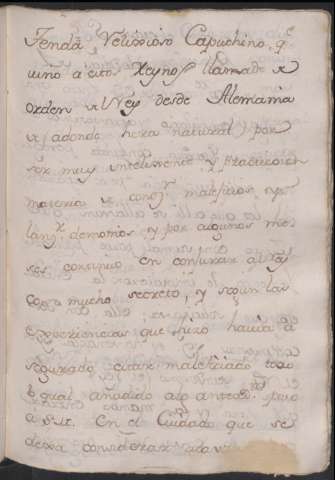 Tenda Relixioso Capuchino, q.e
vino a estos Reynos llamado de
orden del Rey desde Alemania
de adonde hera natural, por
ser muy intelixente y Practico en
materia de conoz.r maleficios, y
lanz.r demonios y por algunos me
ses continuo en conjurar al Rey
con mucho secreto, y segun las
experiencias que hizo havia a
segurado estar maleficiado todo
lo qual añadido a lo anteced.te puso
a S.M. En el Cuidado que se
dexa considerar